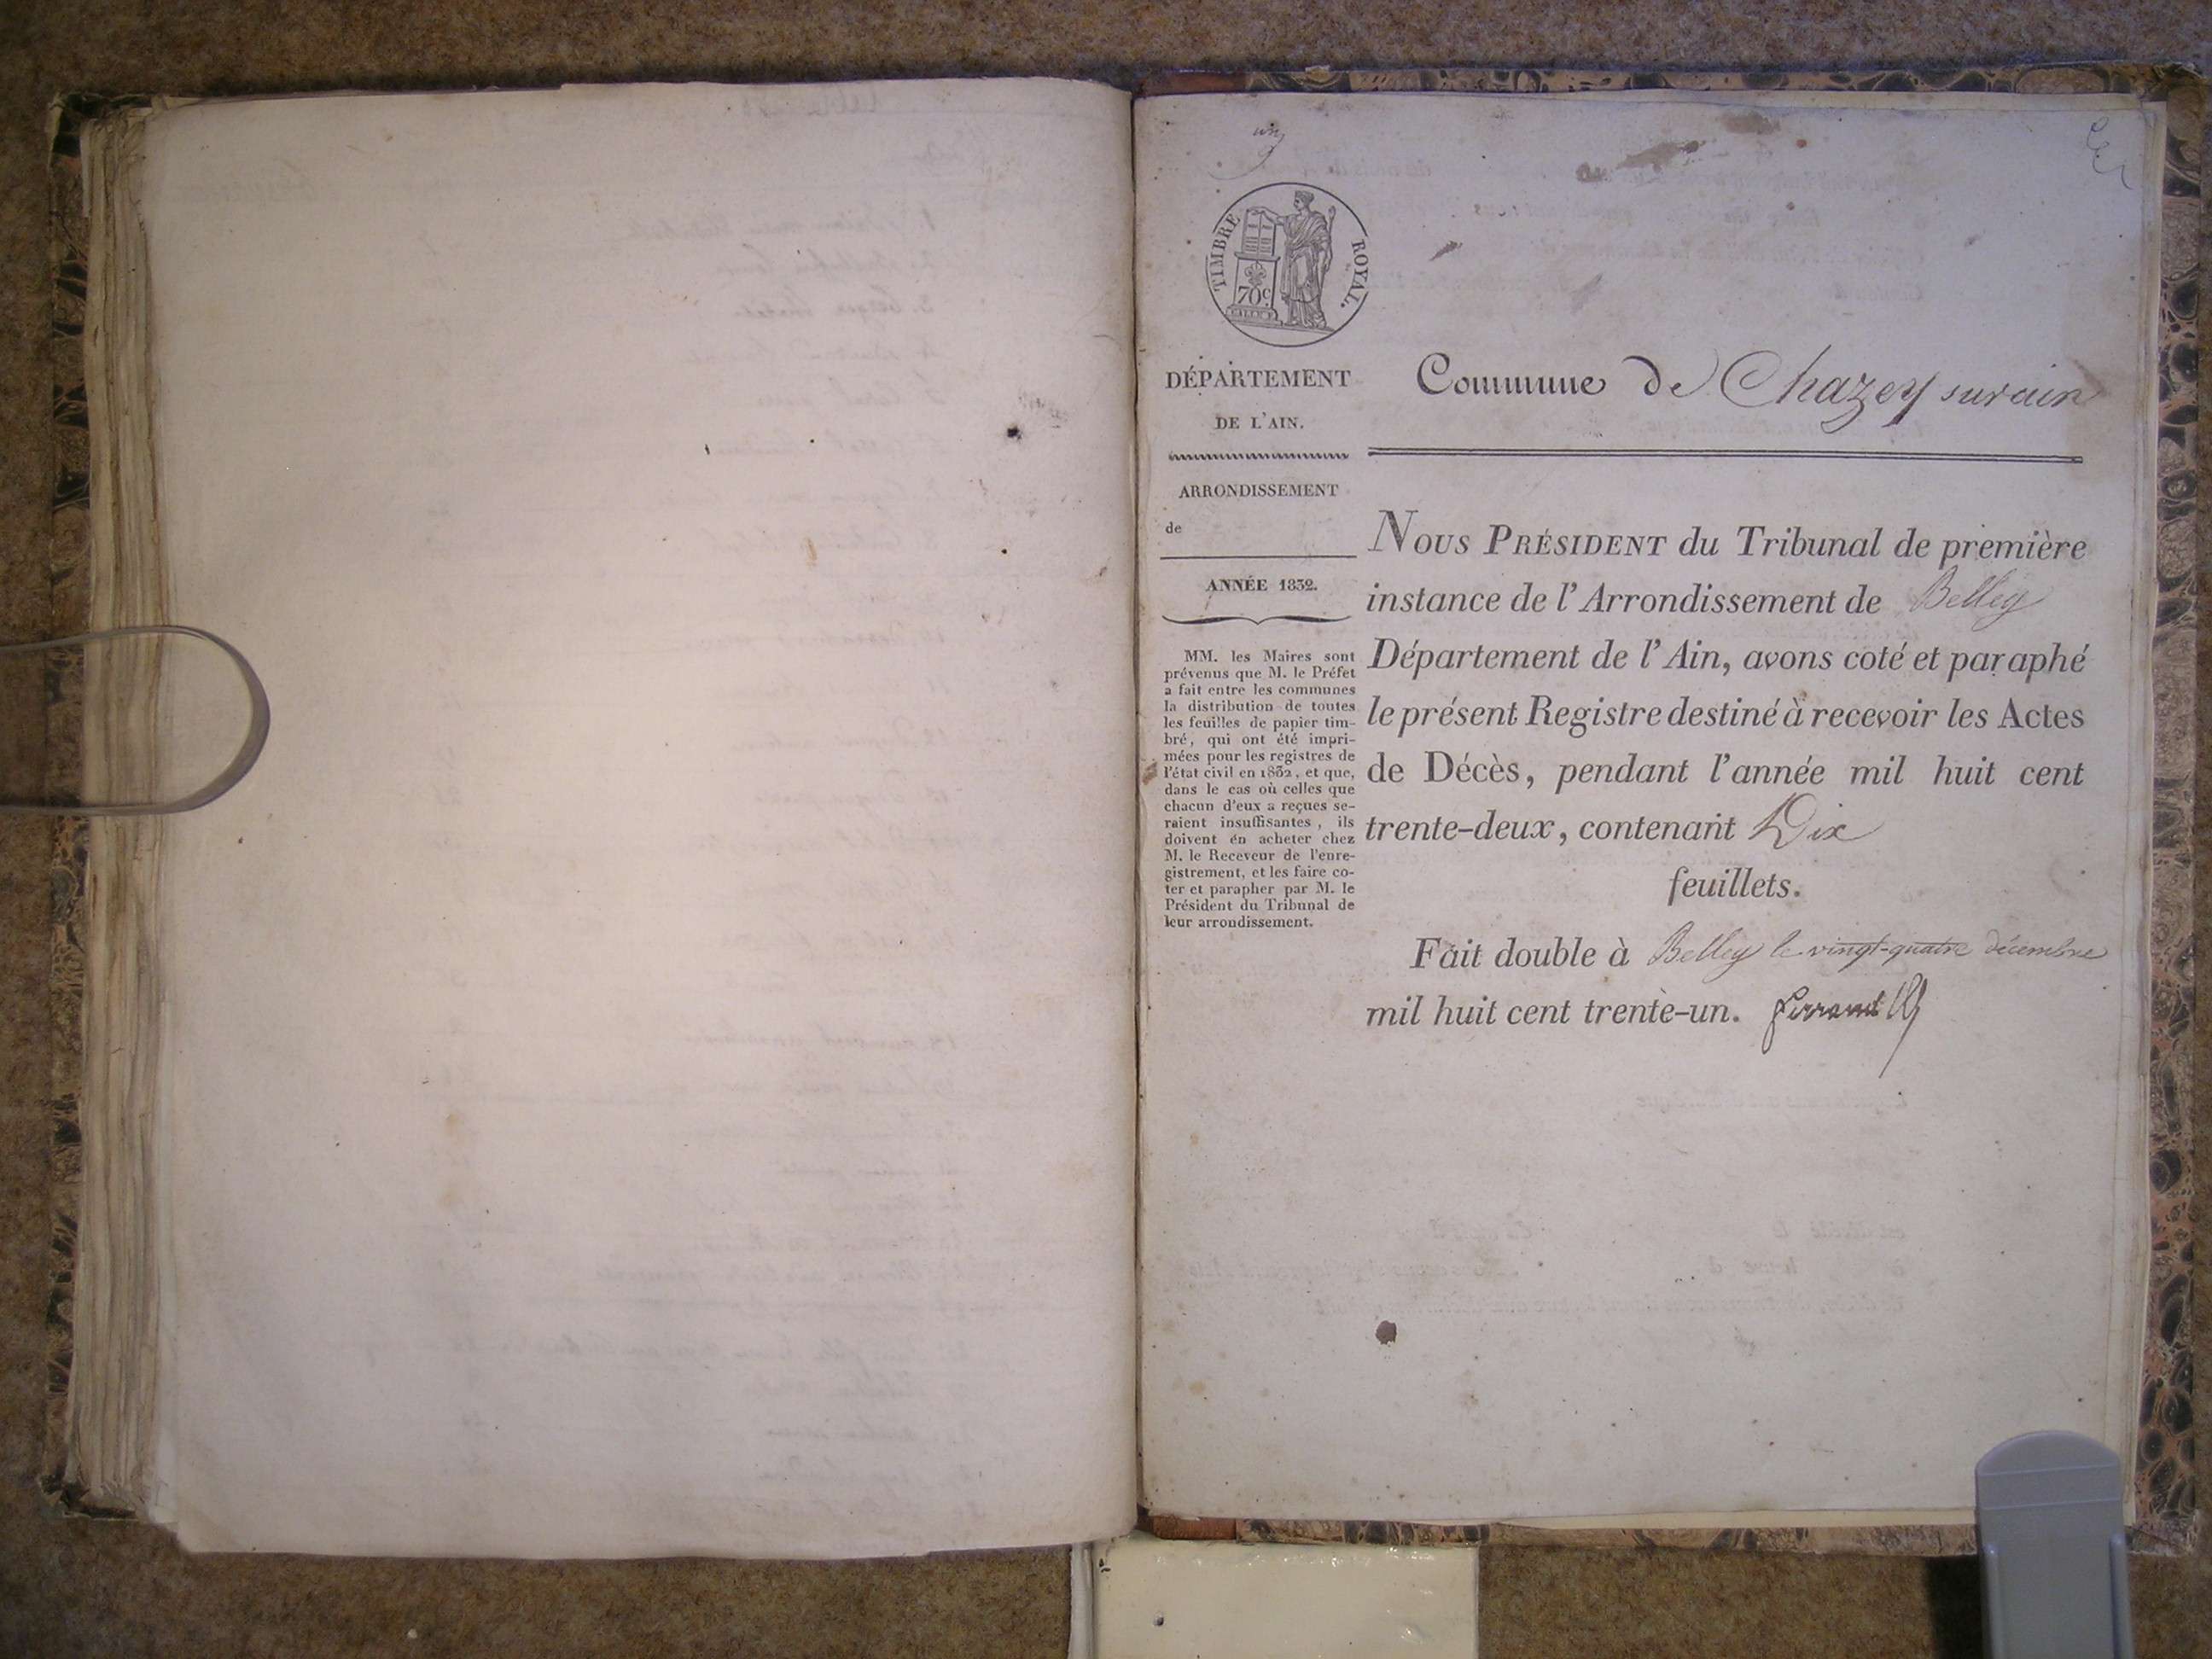 TIMBRE ROYAL.
70c
DÉPARTEMENT
DE L'AIN.
ARRONDISSEMENT
de
ANNÉE 1832.
MM. les Maires sont
prévenus que M. le Préfet
a fait entre les communes
la distribution de toutes
les feuilles de papier tim-
bré, qui ont été impri-
mées pour les registres de
l'état civil en 1832, et que,
dans le cas où celles que
chacun d'eux a reçues se-
raient insuffisantes, ils
doivent en acheter chez
M. le Receveur de l'enre-
gistrement, et les faire co-
ter et parapher par M. le
Président du Tribunal de
leur arrondissement.
Commune de Chazey sur ain
NOUS PRÉSIDENT du Tribunal de première
instance de l'Arrondissement de Belley
Département de l'Ain, avons coté et paraphé
le présent Registre destiné à recevoir les Actes
de Décès, pendant l'année mil huit cent
trente-deux, contenant Dix
feuillets.
Fait double à Belley le vingt-quatre décembre
mil huit cent trente-un.